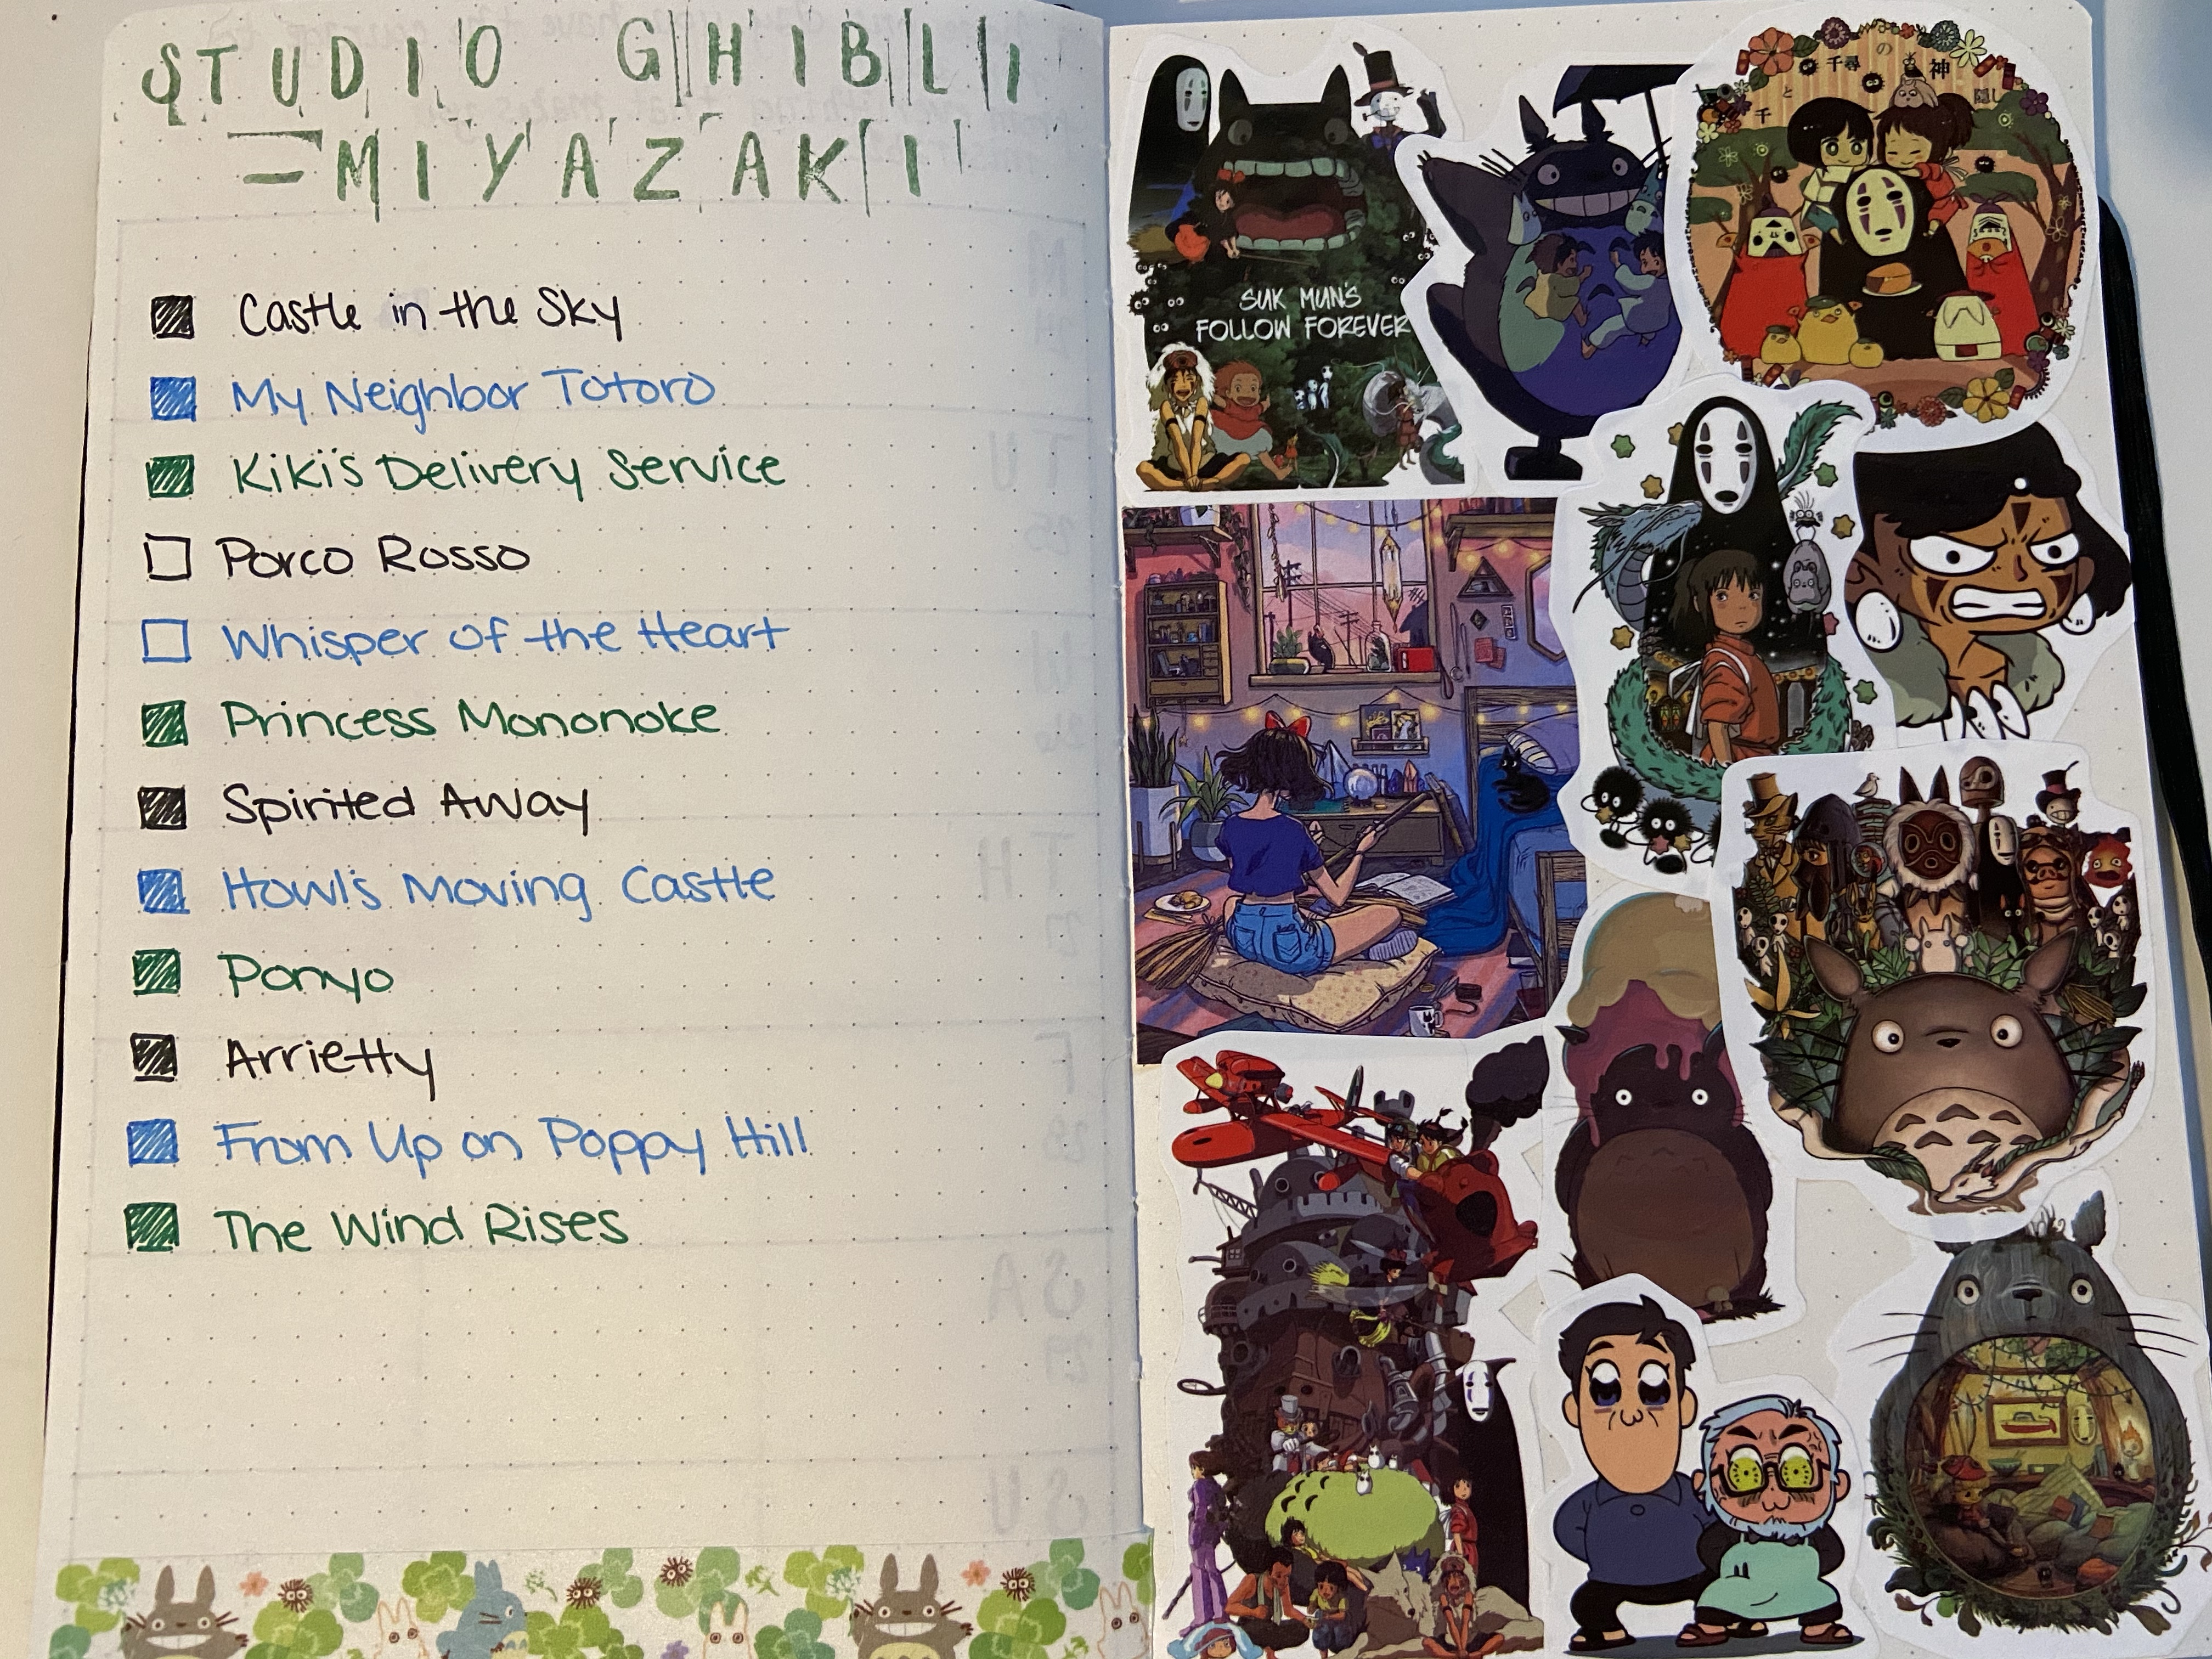 STUDIO GHIBLI
-MIYAZAKI
Castle in the Sky
My Neighbor Totoro
Kiki's Delivery Service
Porco Rosso
Whisper of the Heart
Princess Mononoke
Spirited Away
Howl's Moving Castle
Ponyo
Arrietty
From Up on Poppy Hill
The Wind Rises
SUK MUN'S
FOLLOW FOREVER
の
千尋
神
と
隠し
千